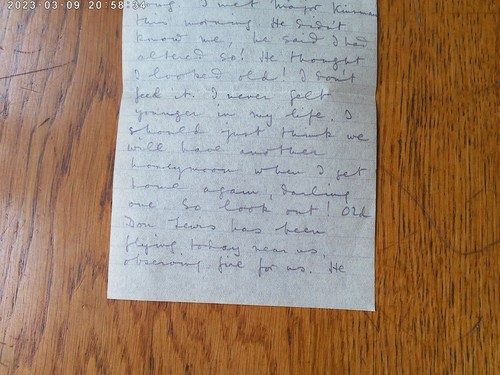 2023-03-09 20:58:34
I met Major
this morning. He didn't
know me, he said I had
altered so! He thought
I looked old! I don't
feel it. I never felt
younger in my life. I
should just think we
will have another
honeymoon when I get
home again, darling
one so look out! Old
Don Lewis has been
flying today near us,
observing fire for us. He